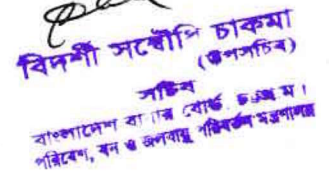 বিদর্শী সম্বৌধি চাকমা
(উপসচিব)
সচিব
বাংলাদেশ রাবার বোর্ড, চট্টগ্রাম।
পরিবেশ, বন ও জলবায়ু পরিবর্তন মন্ত্রণালয়